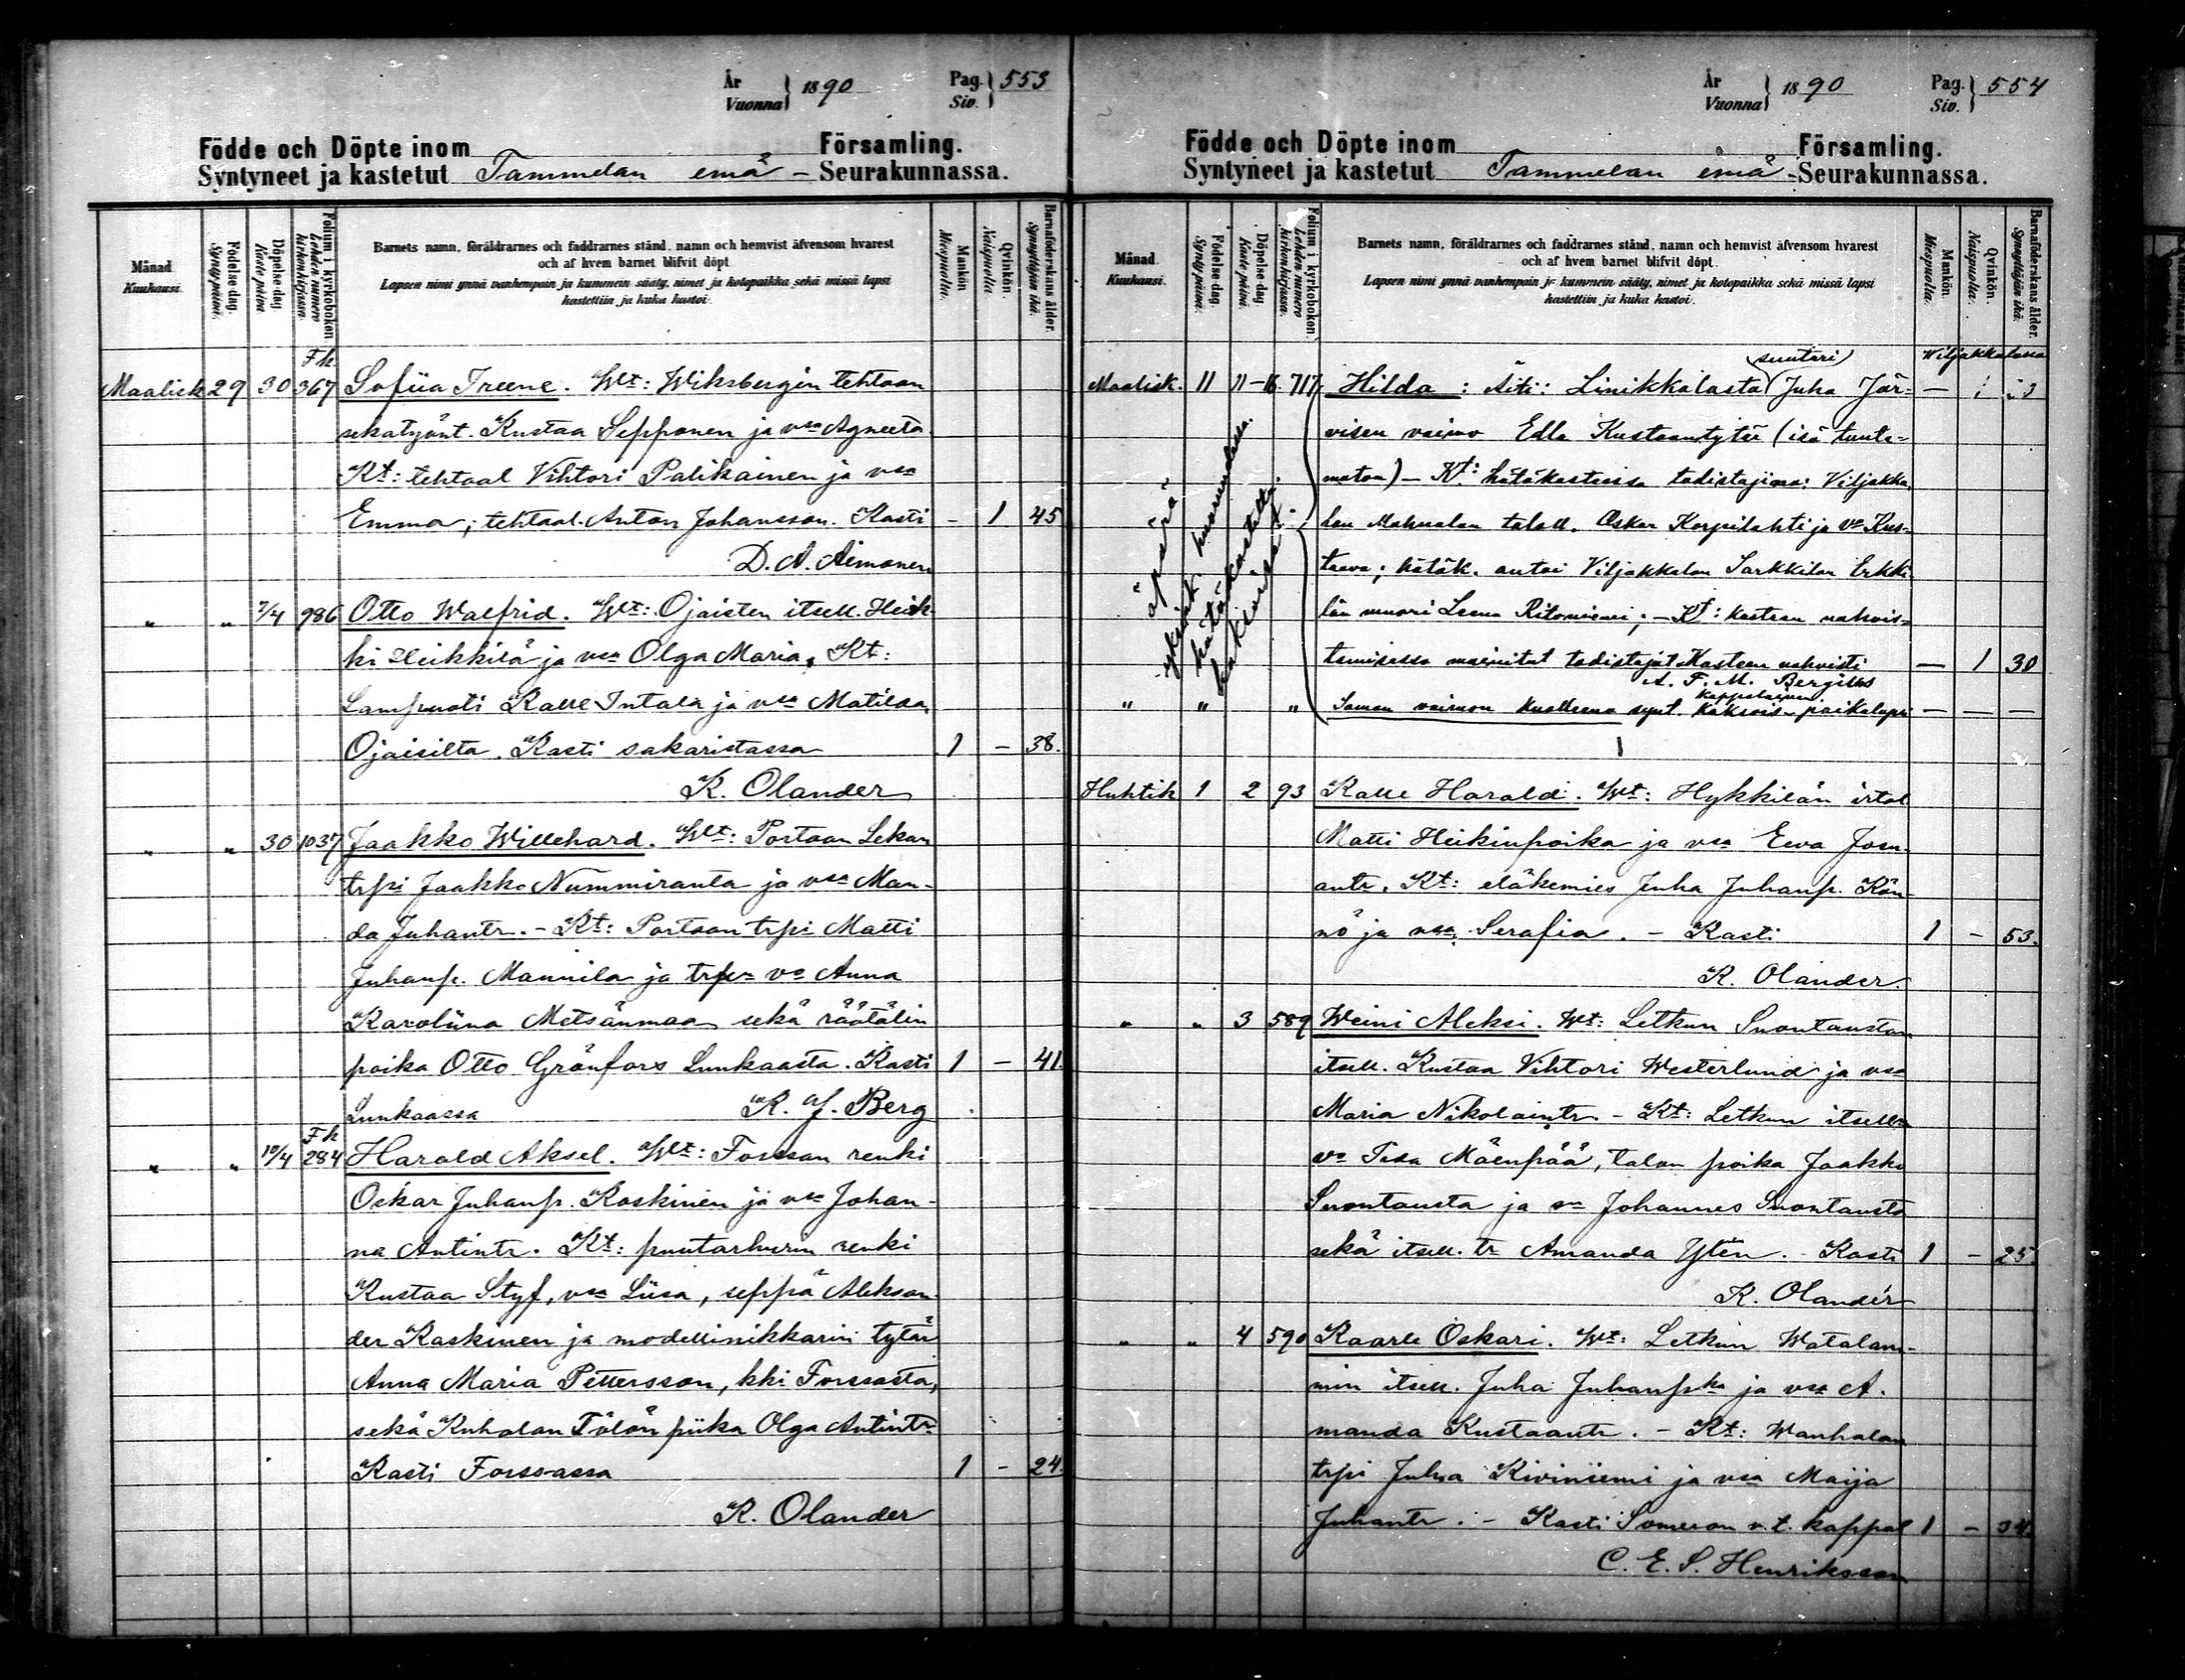 År
Vuonna } 1890 Pag.
Siv. } 553
Födde och Döpte inom Församling.
Syntyneet ja kastetut Tammelan emä - Seurakunnassa.
Månad
Kuukausi.
Födelse dag.
Synty päivä.
Döpelse dag
Kaste päivä
Folium i kyrkobokon
Lehden numero
kirkonkirjassa.
Barnets namn, föräldrarnes och faddrarnes stånd, namn och hemvist äfvensom hvarest
och af hvem barnet blifvit döpt
Lapsen nimi ynnä vanhempain ja kummein sääty, nimet ja kotopaikka sekä missä lapsi
kastettiin ja kuka kastoi.
Mankön
Miespuolta.
Qvinkön.
Naispuolta.
Barnaföderskans ålder.
Synnyttäjän ikä.
Fk
Maalisk 29 30 367 Sofiia Ireene. Wt: Wiksbergin tehtaan
sekatyönt. Kustaa Sepponen ja vsa Agneeta
Kt: tehtaal Vihtori Palikainen ja vsa
Emma, tehtaal. Anton Johansson. Kasti - 1 45
D. A. Aimonen
" " 7/4 986 Otto Walfrid. Wt: Ojaisten itsell. Heik-
ki Heikkilä ja vsa Olga Maria. Kt:
Lampuoti Kalle Intala ja vsa Matilda
Ojaisilta. Kasti sakaristassa 1 - 38.
K. Olander
" " 30 1037 Jaakko Willehard. Wt: Portaan Lekan
trpi Jaakko Nummiranta ja vsa Man-
da Juhantr. - Kt: Portaan trpi Matti
Juhanp. Mannila ja trpn vo Anna
Karoliina Metsänmaa sekä räätälin
poika Otto Grönfors Lunkaasta. Kasti 1 - 41.
Lunkaassa K. J. Berg
Fk
" " 10/4 284 Harald Aksel. Wt: Forssan renki
Oskar Juhanp. Koskinen ja vsa Johan-
na Antintr. Kt: puutarhurin renki
Kustaa Styf, vsa Liisa, seppä Aleksan-
der Kaskinen ja modellinikkarin tytär
Anna Maria Pettersson, kki Forssasta,
sekä Kuhalan Tölön piika Olga Antintr.
Kasti Forssassa 1 - 24
K. Olander
År
Vuonna } 1890 Pag.
Siv. } 554
Födde och Döpte inom Församling.
Syntyneet ja kastetut Tammelan emä - Seurakunnassa.
Månad.
Kuukausi.
Födelse-dag.
Synty päivä.
Döpelse-dag
Kaste päivä.
Folium i kyrkobokon
Lehden numero
kirkonkirjassa.
Barnets namn, föräldrarnes och faddrarnes stånd, namn och hemvist äfvensom hvarest
och af hvem barnet blifvit döpt.
Lapsen nimi ynnä vanhempain ja kummein sääty, nimet ja kotopaikka sekä missä lapsi
kastettiin ja kuka kastoi.
Mankön
Miespuolta.
Qvinkön.
Naispuolta.
Barnaföderskans ålder.
Synnyttäjän ikä.
suutari Wiljakkalassa
Maalisk. 11 11-16. 717. Hilda : Äiti: Linikkalasta Juha Jär-
visen vaimo Edla Kustaantytär (isä tunte-
maton) - Kt: hätäkasteessa todistajina: Viljakka-
lan Mahnalan taloll. Oskar Korpilahti ja vo Kus-
taava; hätäk. antoi Viljakkalan Sarkkilan Erkki-
län muori Leena Ritoniemi; - Kt: kasteen vahvis-
tamisessa mainitut todistajat. Kasteen vahvisti - 1 30
A. F. M. Bergius
kappalainen
" " " Saman vaimon kuolleena synt. kaksois-poikalapsi - - -
äpärä
hätäkastettu
Huhtik 1 2 93 Kalle Harald. Wt: Hykkilän irtol
Matti Heikinpoika ja vsa Eeva Joos-
antr. Kt: eläkemies Juha Juhanp. Kön-
nö ja vsa Serafia. - Kasti 1 - 53.
K. Olander.
" " 3 589 Weini Aleksi. Wt: Letkun Suontaustan
itsell. Kustaa Vihtori Westerlund ja vsa
Maria Nikolaintr. - Kt: Letkun itselln
vo Iisa Mäenpää, talon poika Jaakko
Suontausta ja sn Johannes Suontausta
sekä itsell. tr Amanda Ylén. - Kasti 1 - 25.
K. Olander
" " 4 590 Kaarle Oskari. Wt: Letkun Watalam-
min itsell. Juha Juhanpka ja vsa A-
manda Kustaantr. - Kt: Wanhalan
trpi Juha Kiviniemi ja vsa Maija
Juhantr. - Kasti Someron v.t. kappal 1 - 34.
C. E. S. Henriksson